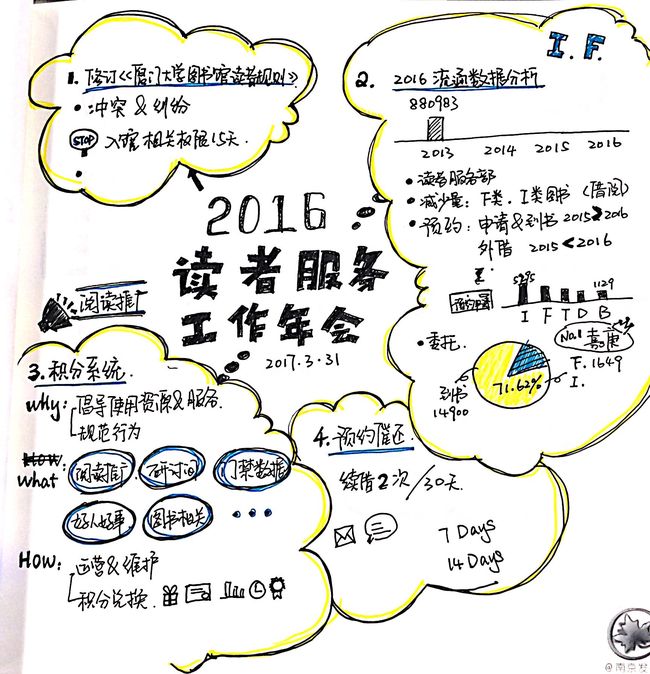 1. 修订《厦门大学图书馆读者规则》
• 冲突 & 纠纷
STOP 入馆相关权限15天.
•
I.F.
2. 2016 流通数据分析
880983
2013 2014 2015 2016
• 读者服务部
• 减少量: F类. I类图书 (借阅)
• 预约: 申请&到书 2015>2016
外借 2015<2016
5295 1129
I F T D B
• 委托.
No.1 嘉庚
F. 1649
I.
到书
14900
71.62%
2016
读者服务
工作年会
2017.3.31
阅读推广
3. 积分系统.
why: 倡导使用资源&服务.
规范行为
How
what: 阅读推广 研讨间 门禁数据
好人好事 图书相关 •••
How: 运营&维护
积分兑换.
4. 预约催还.
续借2次/30天.
7 Days
14 Days
@南京发